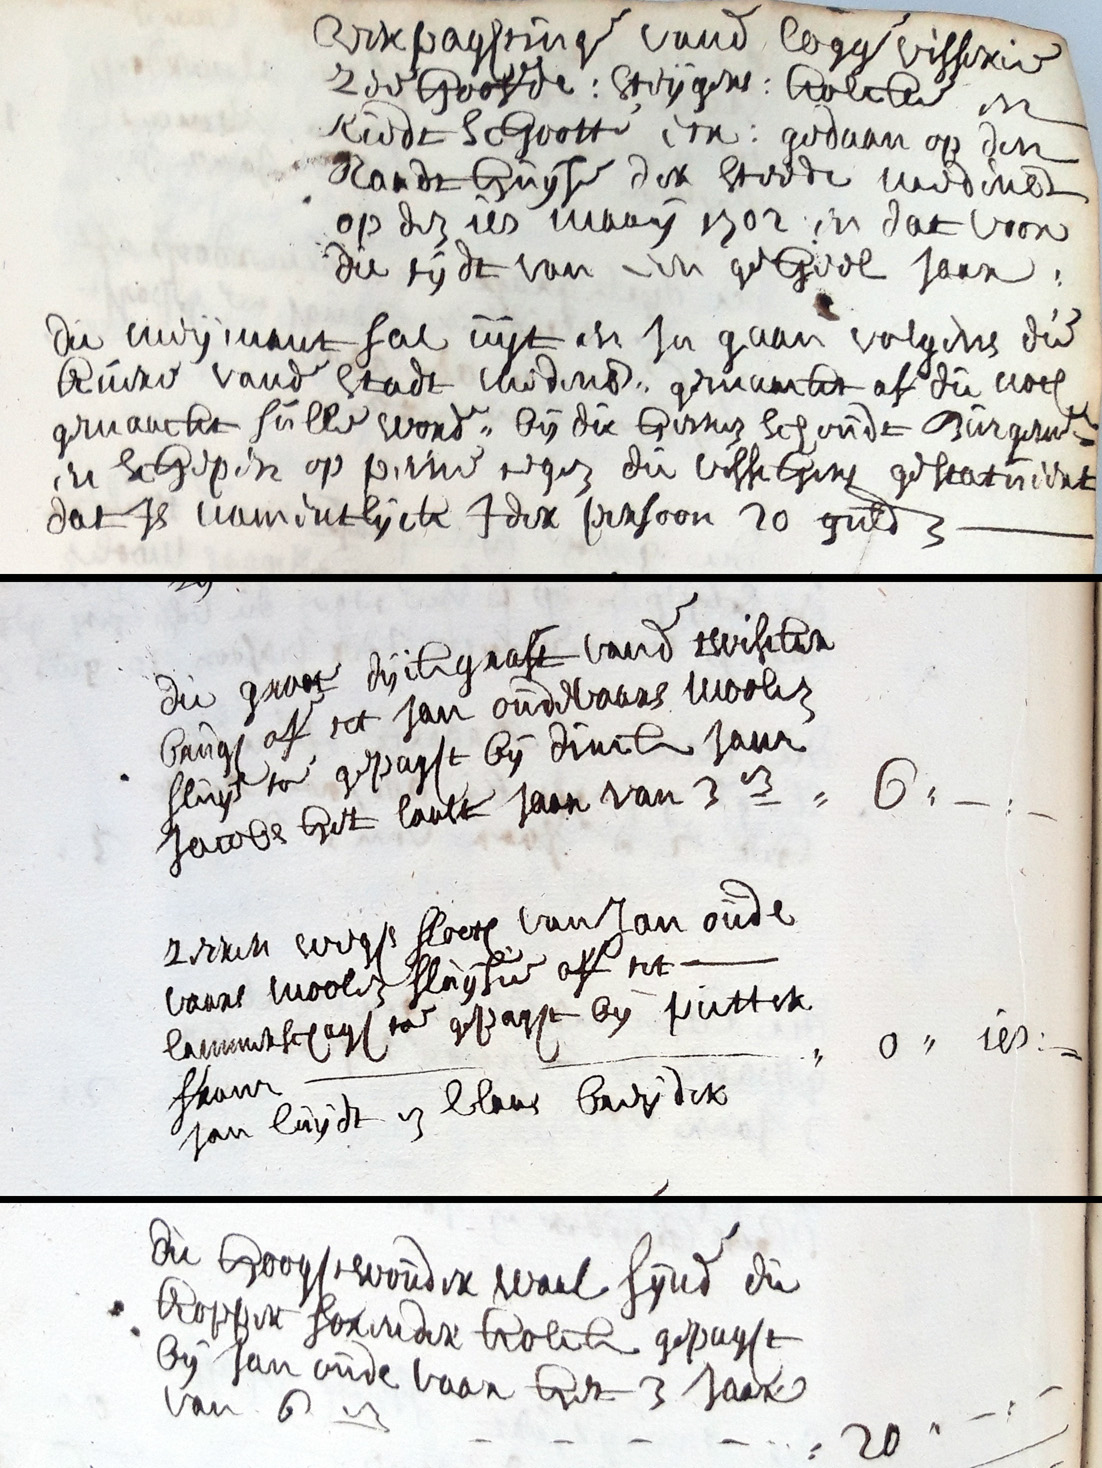 Verpagting vand logge visserie
Zoo Hoofde : Steijgers : kolcke en
Riedt schootte etc : gedaan op den
Raadt Huijse der steede medenb
op den ies maaij 1702 in dat voor
die tijdt van een geheel jaar :
die mijmant sal uijt en in gaan volgens die
kuere vand stadt medenb :. gemaackt of die noch
gemaackt sulle word :. bij die heeren schoudt Burgem
en schepen op peene tegen die visschers gestatueert
dat is namentlijck Ider persoon 20 guld
die groot dijckgraft vand twisker
brugs af tot jan oudevaars moolen
sluijs toe gepagst bij dirck jans
jacobs het laatste jaar van 3 en „ 6 „ — : —
weegs sloots van Jan oude
vaars moolen sluijsie af tot —
lammertschaegs toe gepagst bij pietter
„ 0 „ ies : —
jan luijdt en klaas breijder
die Hoogstwouder waal sijnd die
kopper kolck gepagst
bij jan oude vaar het 3 jaar
van 6 en
— — — — : 20 „ — :